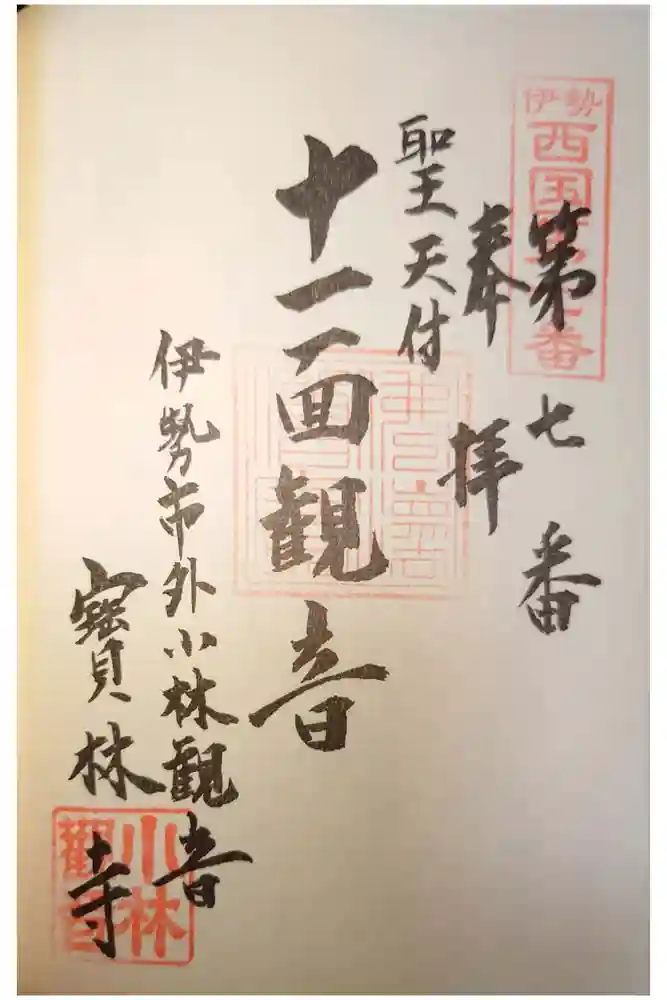 伊勢
西国第七番
第七番
奉拝
聖天付
十一面観音
伊勢市外小林観音
寶林寺
小林
観音